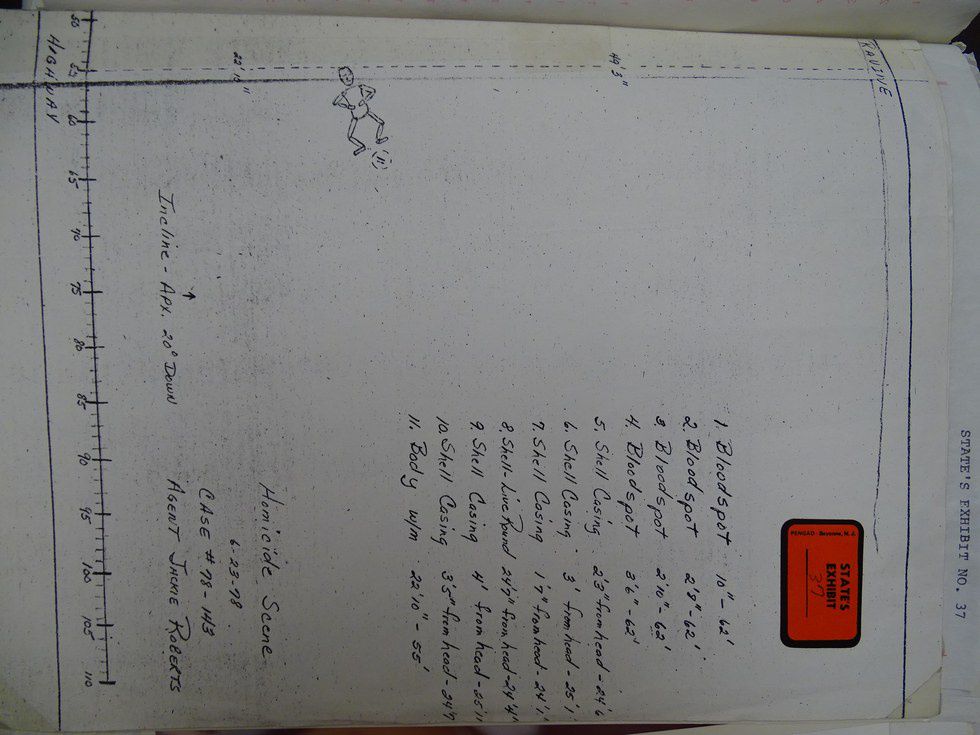 STATE'S EXHIBIT NO. 37
RAVINE
STATE'S
EXHIBIT
37
PENGAD-Bayonne, N.J.
1. Bloodspot 10" - 62'
2. Bloodspot 2'9" - 62'
3. Bloodspot 2'10" - 62'
4. Bloodspot 3'6" - 62'
49'3"
5. Shell Casing 2'3" from head - 24'6
6. Shell Casing 3' from head - 25'1
7. Shell Casing 1'7" from head - 24'1"
8. Shell-Live Round 24'7" from head - 24'4"
9. Shell Casing 4' from head - 25'11
10. Shell Casing 3'5" from head - 24'7
11. Body w/m 22'10" - 55'
(11)
22'10"
Homicide Scene
6-23-78
CASE #78-143
Incline - Apx. 20° Down
AGENT JACKIE ROBERTS
50 55 60 65 70 75 80 85 90 95 100 105 110
HIGHWAY